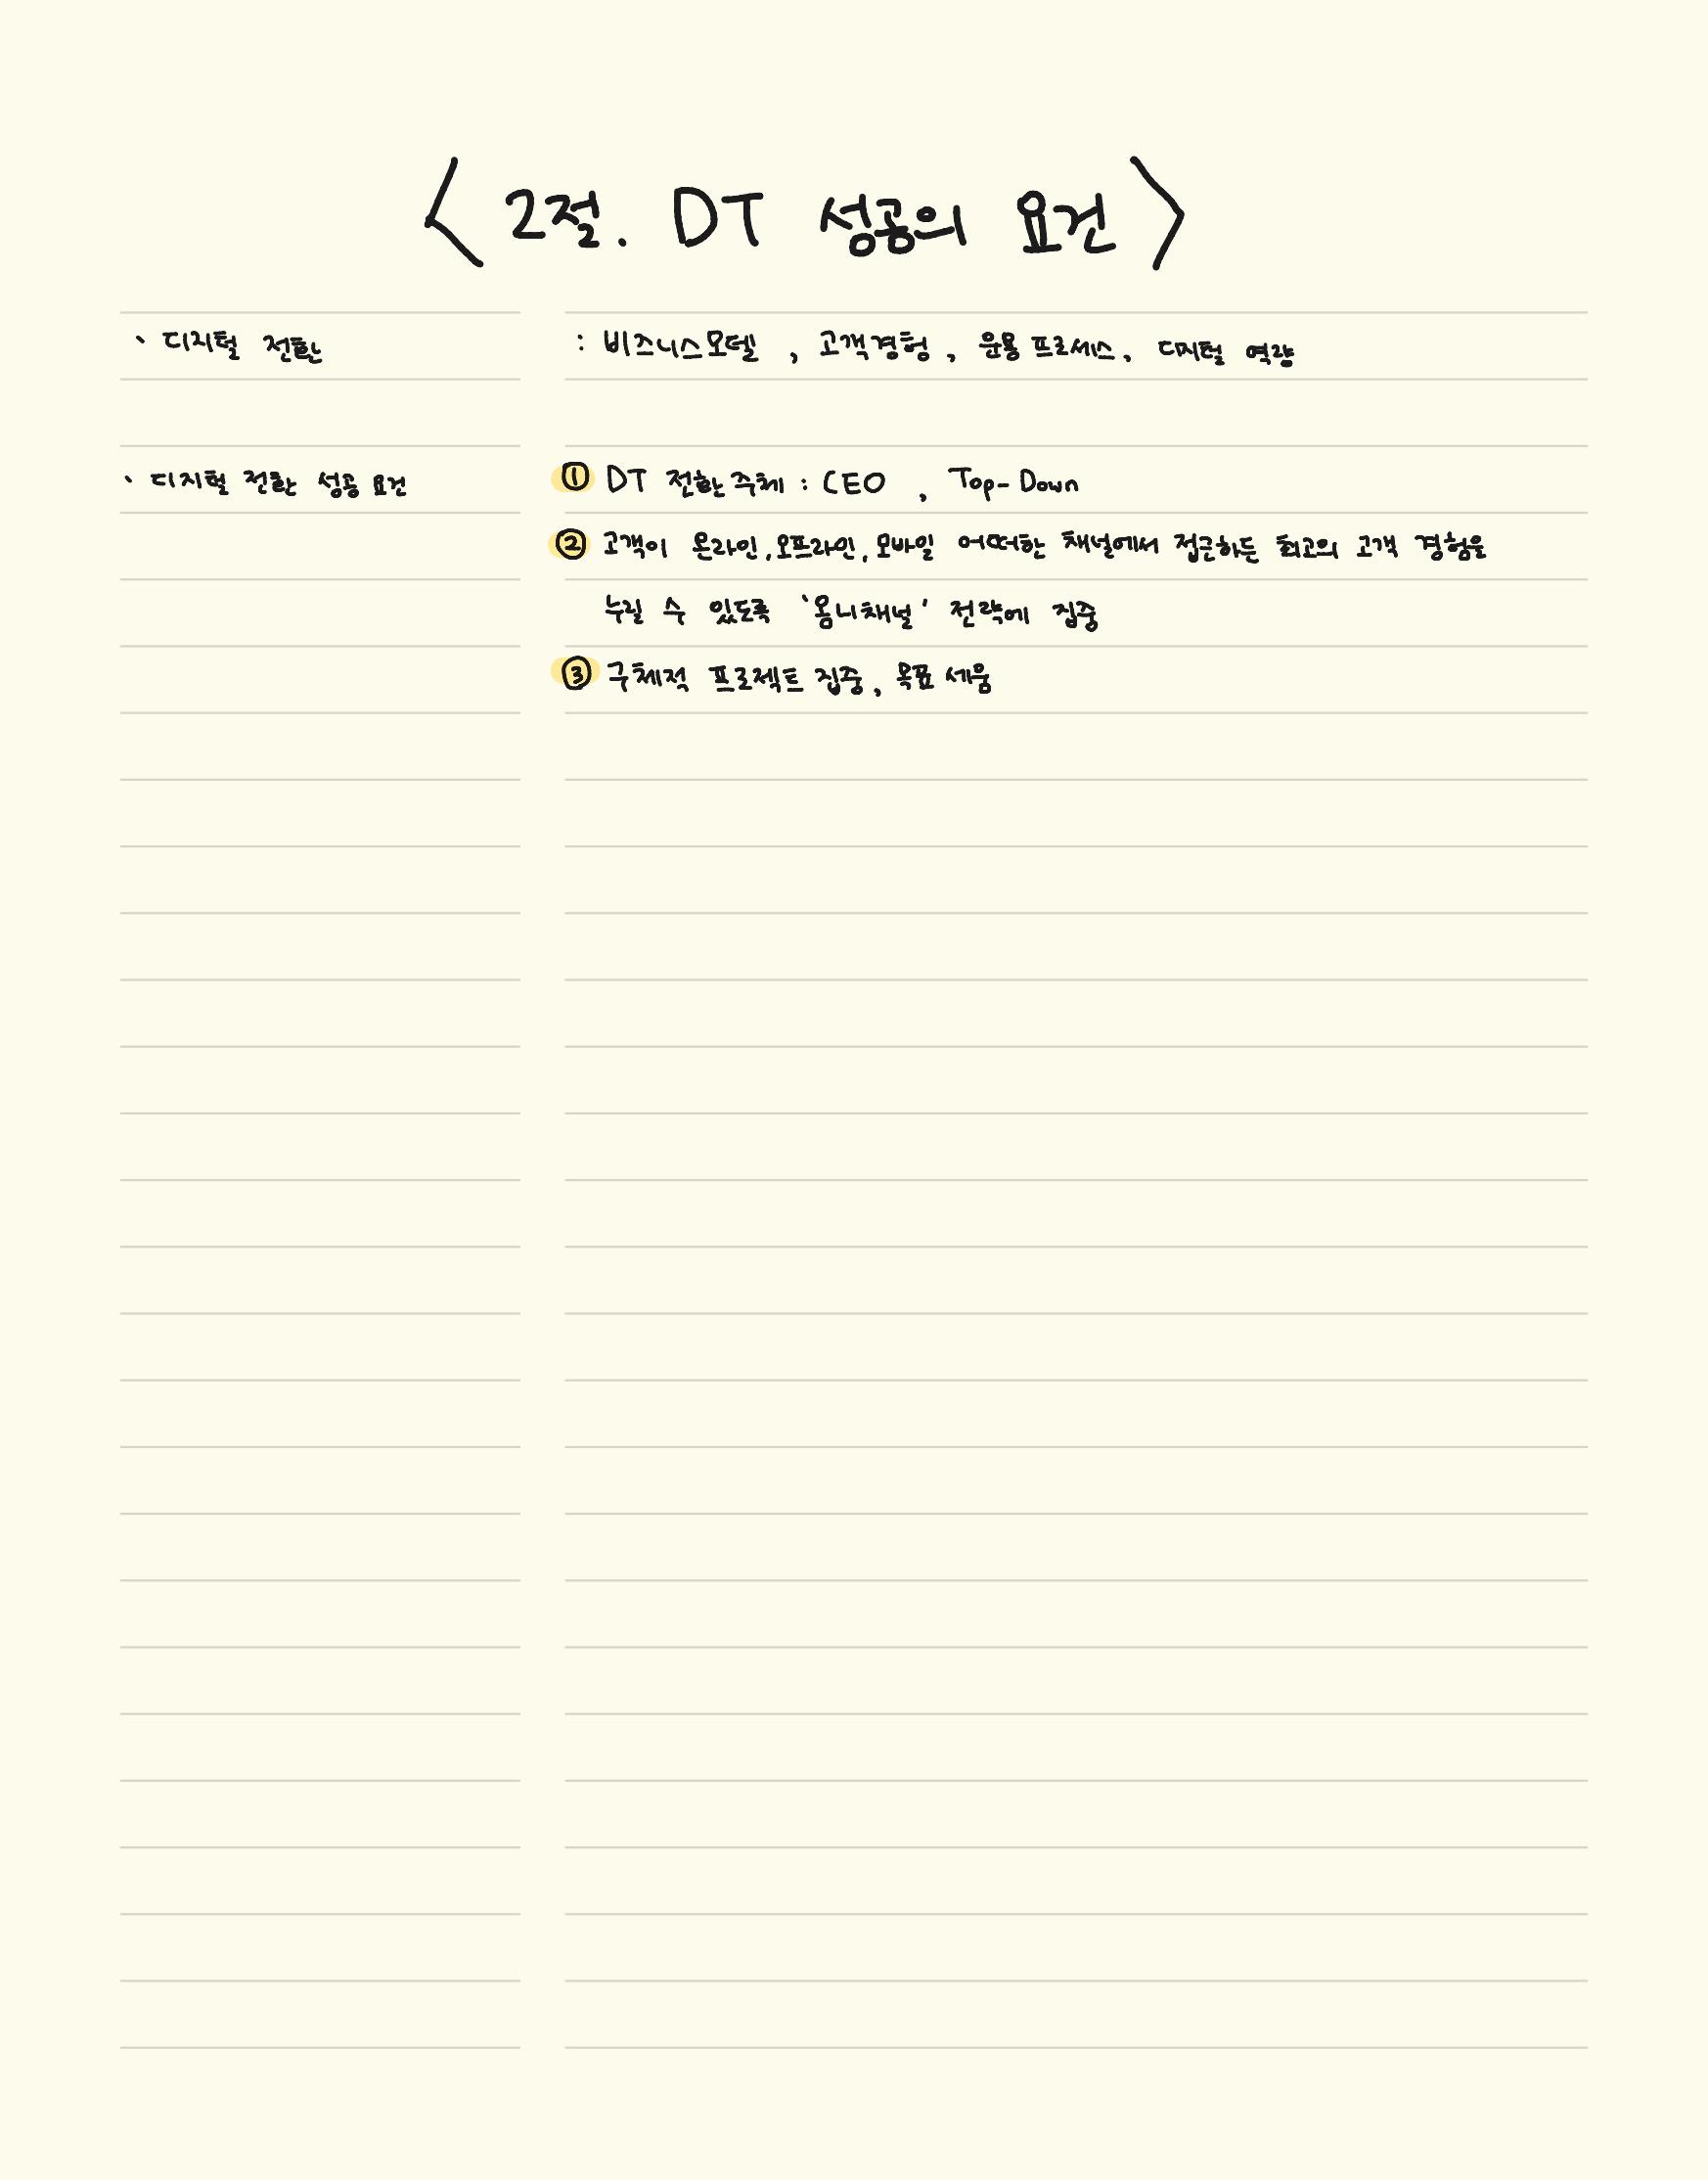 < 2절. DT 성공의 요건 >
` 디지털 전환 : 비즈니스모델 , 고객경험 , 운용 프로세스, 디지털 역량
` 디지털 전환 성공 요건 ① DT 전환 주체 : CEO , Top-Down
② 고객이 온라인, 오프라인, 모바일 어떠한 채널에서 접근하든 최고의 고객 경험을
누릴 수 있도록 '옴니채널' 전략에 집중
③ 구체적 프로젝트 집중, 목표 세움